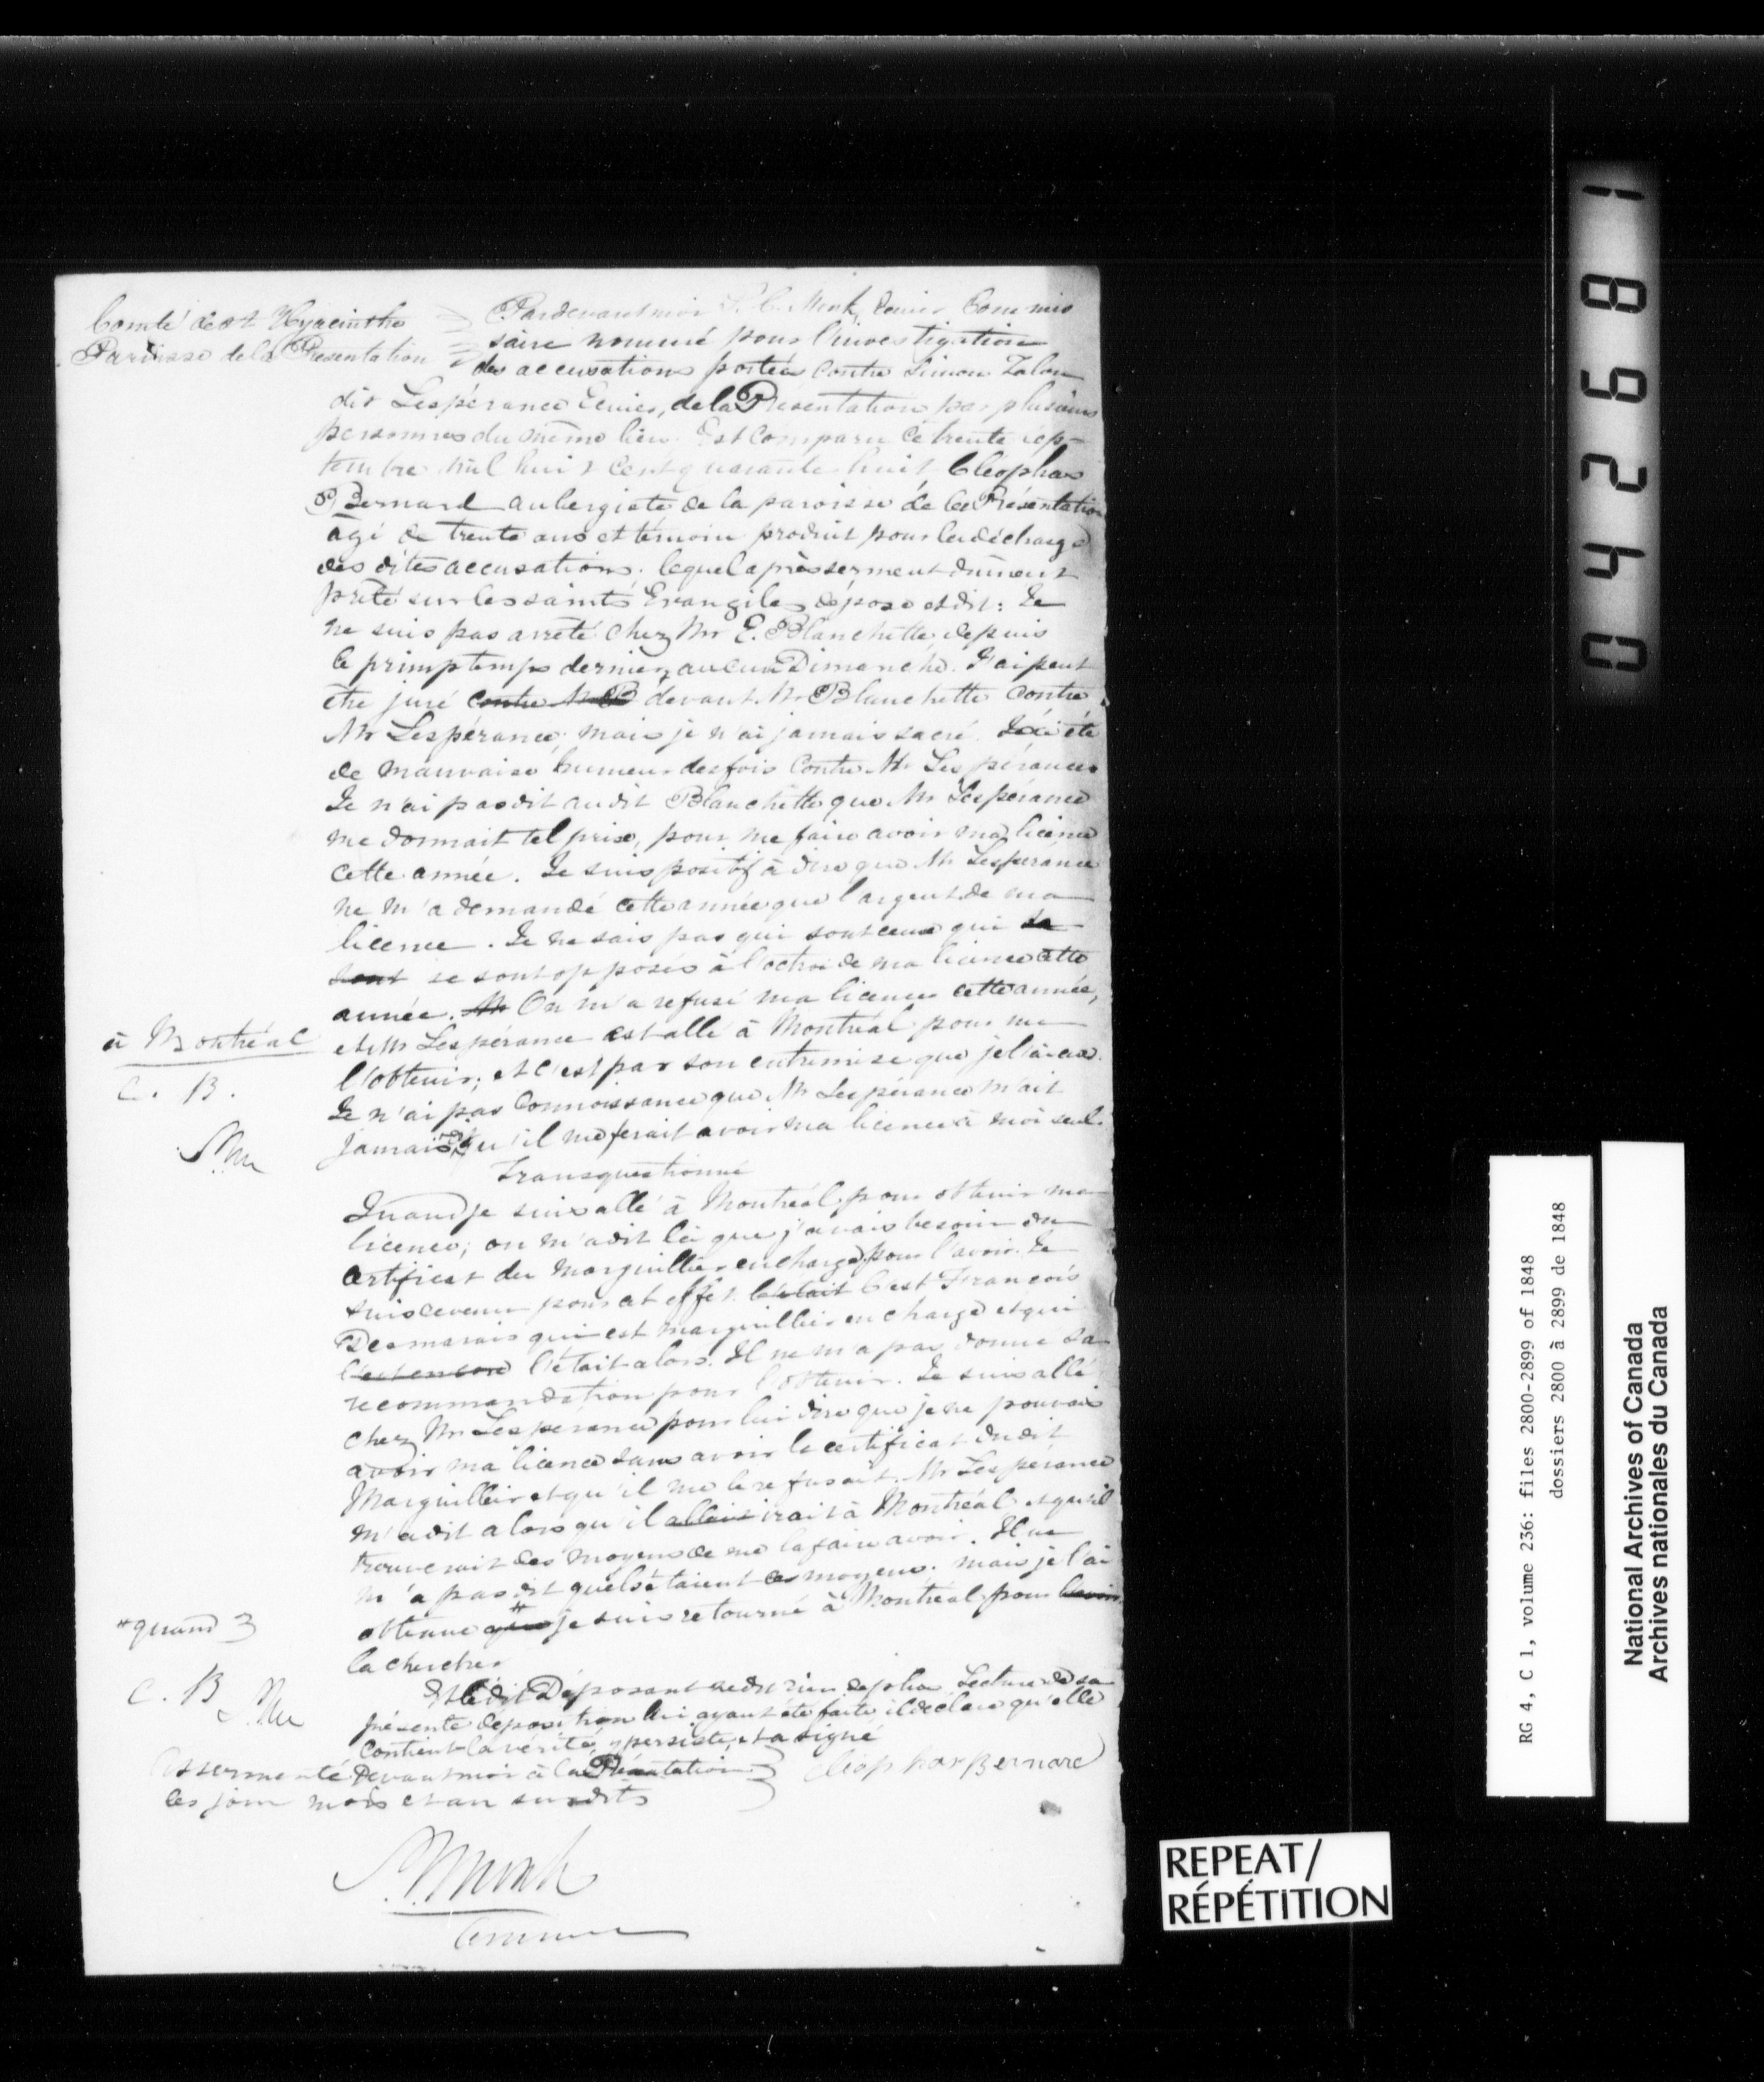 Comté de St Hyacinthe
Paroisse de la Présentation
Pardevant moi S. C. Monk, Ecuier Commis
saire nommé pour l'investigation
des accusations portées contre Simon Talon
dit Lespérance Ecuier, de la Présentation par plusieurs
personnes du même lieu. Est comparu ce trente sep-
tembre mil huit cent quarante huit, Cléophas
Bernard aubergiste de la paroisse de la Présentation
âgé de trente ans et témoin produit pour la décharge
des dites accusations. lequel après serment dûment
prêté sur les saints Evangiles dépose et dit: Je
ne suis pas arrêté chez Mr E. Blanchette depuis
le primptemps dernier, aucun Dimanche. J'ai peut
être juré contre Mr B devant Mr Blanchette contre
Mr Lespérance; mais je n'ai jamais sacré. J'ai été
de mauvaise humeur des fois contre Mr Lespérance
Je n'ai pas dit audit Blanchette que Mr Lespérance
me donnait tel prix, pour me faire avoir ma licence
cette année. Je suis positif à dire que Mr Lespérance
ne m'a demandé cette année que l'argent de ma
licence. Je ne sais pas qui sont ceux qui se
sont se sont opposés à l'octroi de ma licence cette
année. Mr On m'a refusé ma licence cette année,
à Montréal
C. B.
et Mr Lespérance est allé à Montréal pour me
l'obtenir; et c'est par son entremise que je l'ai eue.
Je n'ai pas connoissance que Mr Lespérance m'ait
jamais dit qu'il me ferait avoir ma licence à moi seul.
Transquestionné
Quand je suis allé à Montréal pour obtenir ma
licence; on m'a dit là que j'avais besoin du
certificat du Marguillier en charge pour l'avoir. Je
suis revenu pour cet effet. C'était C'est François
Desmarais qui est marguillier en charge et qui
l'est encore l'était alors. Il ne m'a pas donné sa
recommandation pour l'obtenir. Je suis allé
chez Mr Lespérance pour lui dire que je ne pouvais
avoir ma licence sans avoir le certificat du dit
Marguillier et qu'il me le refusait. Mr Lespérance
m'a dit alors qu'il allait irait à Montréal et qu'il
trouverait des moyens de me la faire avoir. Il ne
m'a pas dit quels étaient ces moyens. mais je l'ai
obtenue que # je suis retourné à Montréal pour l'avoir
la chercher
# quand
C. B
Et le dit Déposant ne dit rien de plus. Lecture de sa
présente déposition lui ayant été faite, il déclare qu'elle
contient la vérité, y persiste, et a signé
Assermenté Devant moi à la Présentation
les jour mois et an susdits
Cléophas Bernard
S. C. Monk
Commre
04268 1
RG 4, C 1, volume 236: files 2800-2899 of 1848
dossiers 2800 à 2899 de 1848
National Archives of Canada
Archives nationales du Canada
REPEAT/
RÉPÉTITION